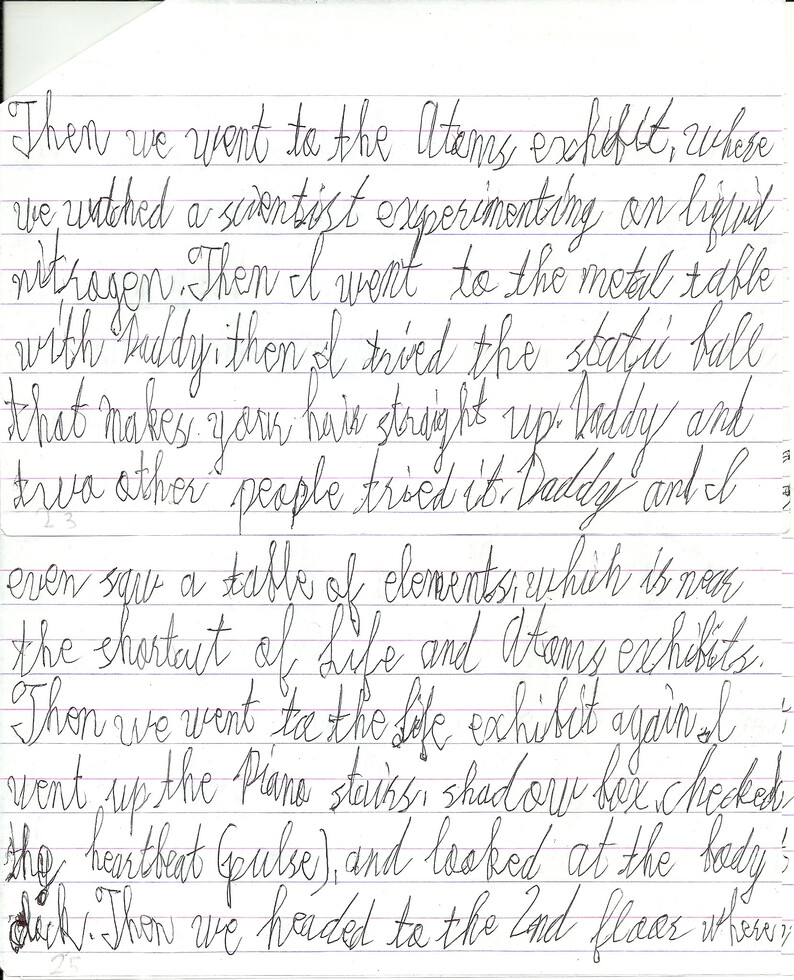 Then we went to the Atoms exhibit, where
we watched a scientist experimenting on liquid
nitrogen. Then I went to the metal table
with Daddy, then I tried the static ball
that makes your hair straight up. Daddy and
two other people tried it. Daddy and I
23
even saw a table of elements, which is near
the shortcut of Life and Atoms exhibits.
Then we went to the life exhibit again. I
went up the Piano stairs, shadow box, checked
the heartbeat (pulse), and looked at the body
clock. Then we headed to the 2nd floor where
25